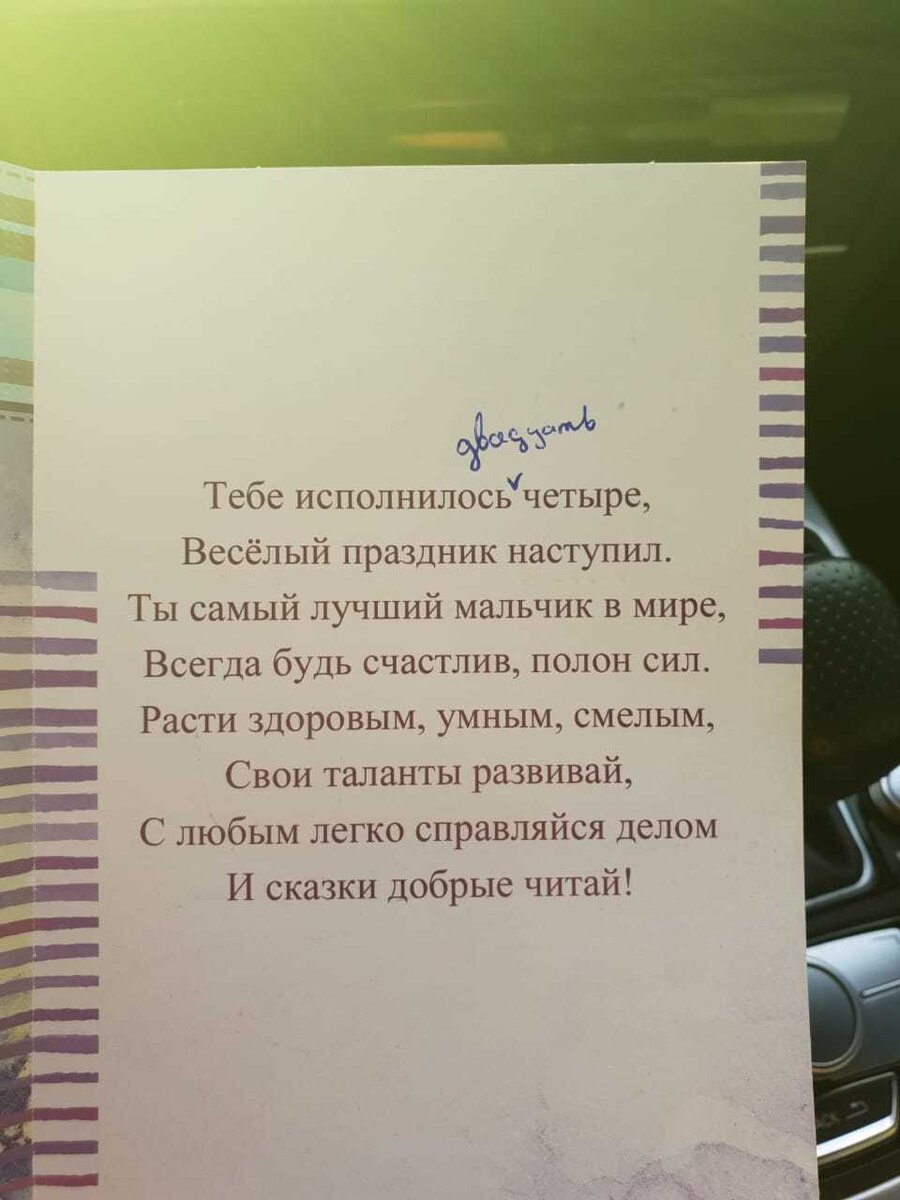 двадцать
Тебе исполнилось ѵ четыре,
Весёлый праздник наступил.
Ты самый лучший мальчик в мире,
Всегда будь счастлив, полон сил.
Расти здоровым, умным, смелым,
Свои таланты развивай,
С любым легко справляйся делом
И сказки добрые читай!